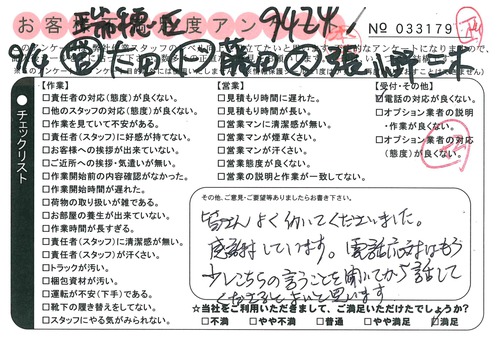 お客
瑞穂区
度アン
9424
No 033179
9/6
チェックリスト
【作業】
□責任者の対応(態度)が良くない。
□他のスタッフの対応(態度)が良くない。
□作業を見ていて不安がある。
□責任者(スタッフ)に好感が持てない。
□お客様への挨拶が出来ていない。
□ご近所への挨拶・気遣いが無い。
□作業開始前の内容確認がなかった。
□作業開始時間が遅れた。
□荷物の取り扱いが雑である。
□お部屋の養生が出来ていない。
□作業時間が長すぎる。
□責任者(スタッフ)に清潔感が無い。
□責任者(スタッフ)が汗くさい。
□トラックが汚い。
□梱包資材が汚い。
□運転が不安(下手)である。
□靴下の履き替えをしてない。
□スタッフにやる気がみられない。
【営業】
□見積もり時間に遅れた。
□見積もり時間が長い。
□営業マンに清潔感が無い。
□営業マンが煙草くさい。
□営業マンが汗くさい。
□営業態度が良くない。
□営業の説明と作業が一致してない。
【受付・その他】
☑電話の対応が良くない。
□オプション業者の説明
・作業が良くない。
□オプション業者の対応
(態度)が良くない。
その他、ご意見・ご要望等ありましたらお書き下さい。
皆さんよく働いてくださいました。
感謝しています。電話応対はもう
少しこちらの言うことを聞いてから話して
くださるとよいと思います
☆当社をご利用いただきまして、ご満足いただけたでしょうか?
□不満 □やや不満 □普通 □やや満足 ☑満足